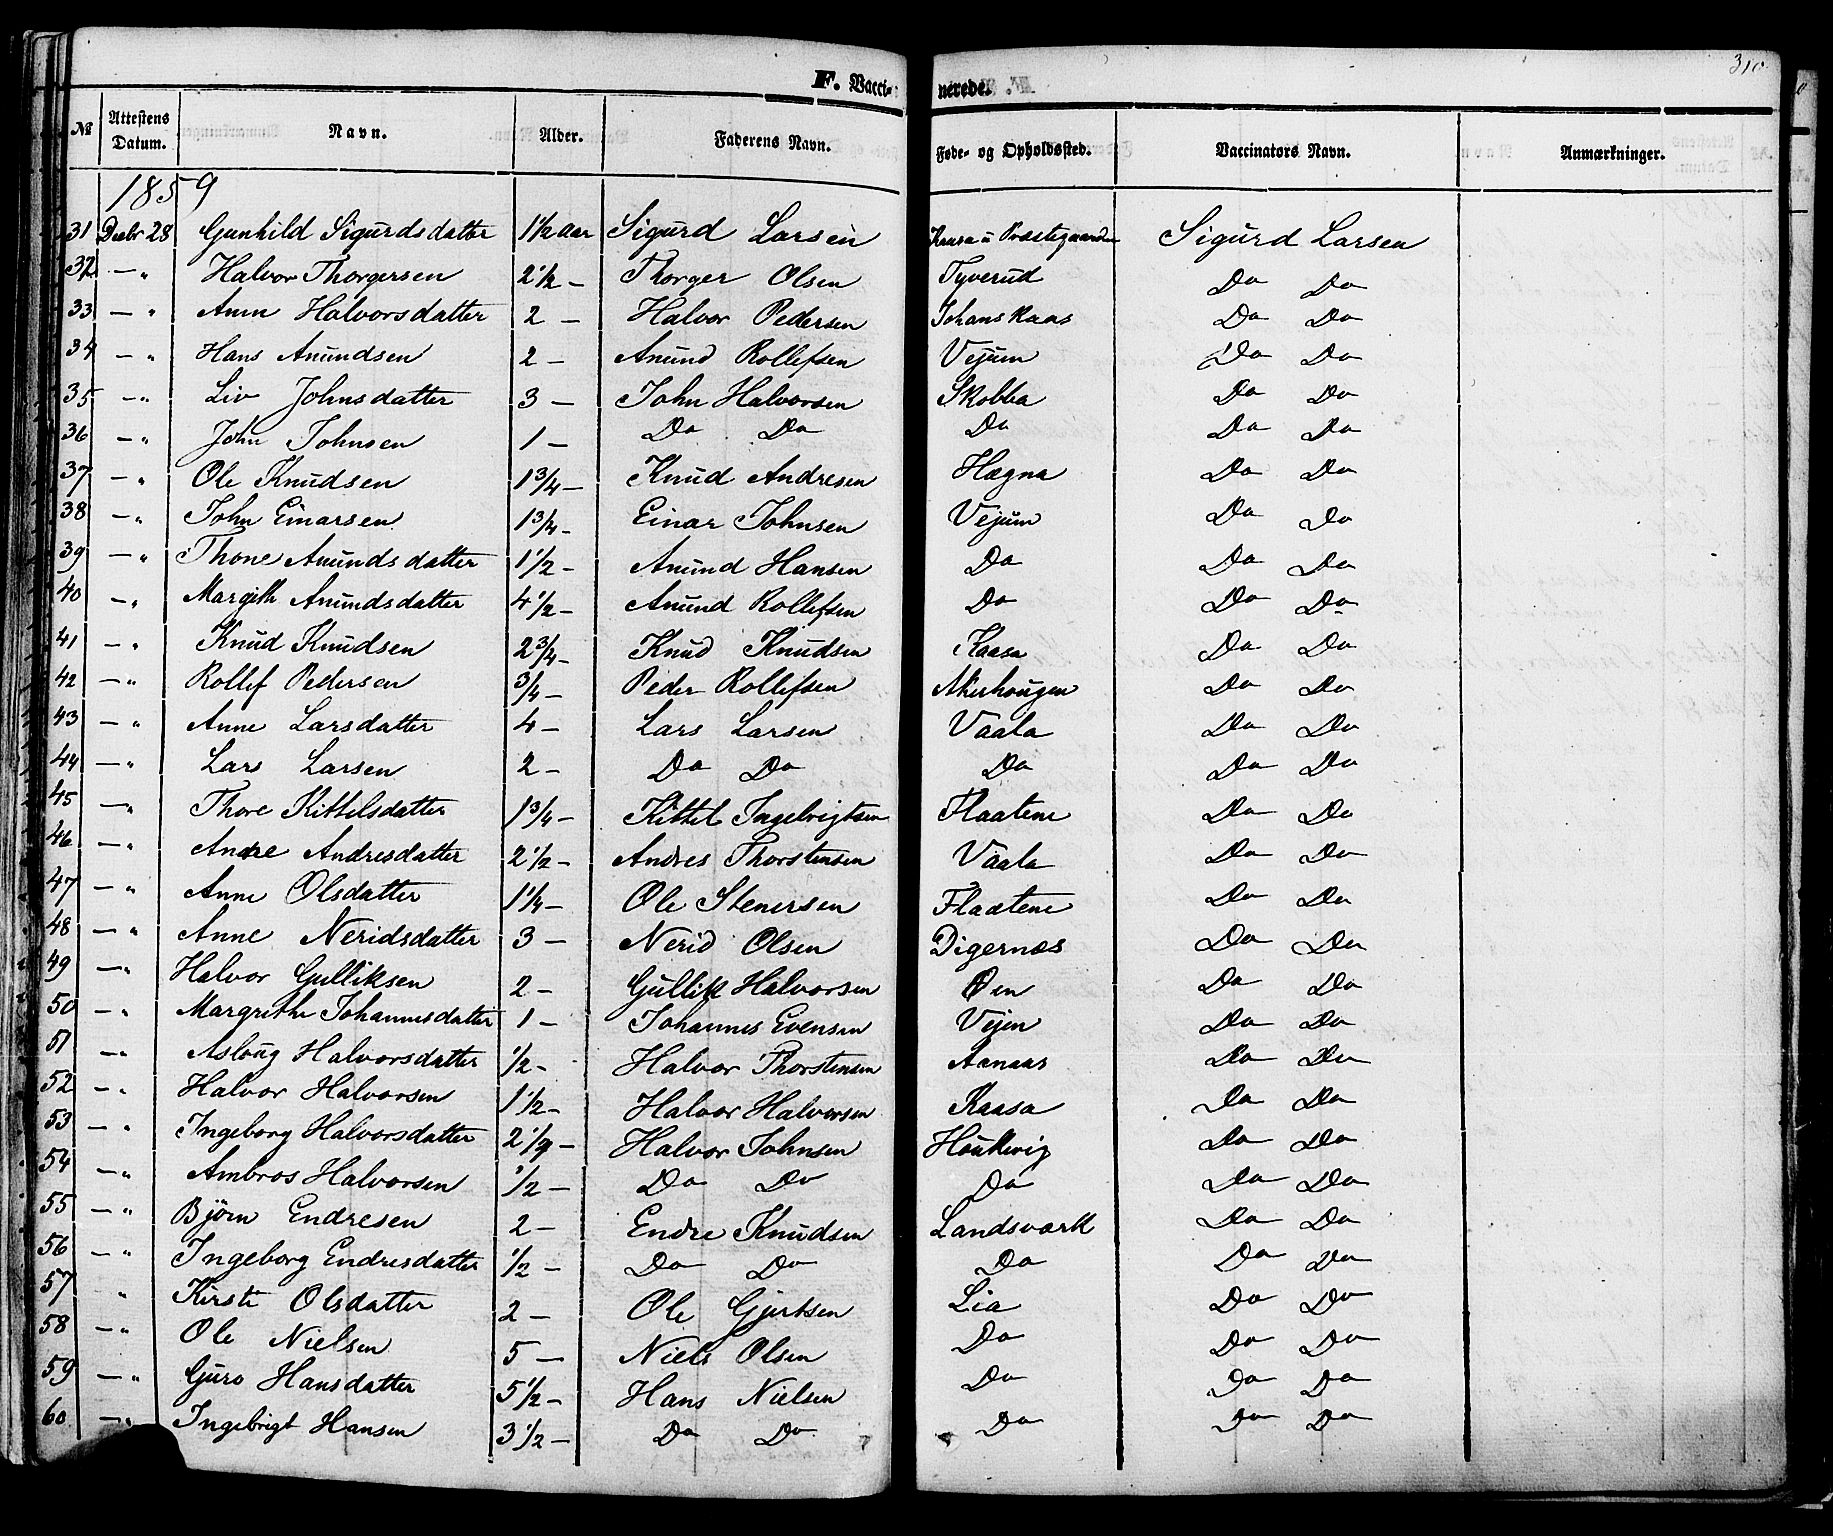 310
F. Vacci- nerede.
№ Attestens Datum. Navn. Alder. Faderens Navn. Føde- og Opholdssted. Vaccinators Navn. Anmærkninger.
1859
31 Decbr 28 Gunhild Sigurdsdatter 1 1/2 aar Sigurd Larsen Præstegaarden Sigurd Larsen
32 — " Halvor Thorgersen 2 1/2 — Thorger Olsen Tyverud Do Do
33 — " Anne Halvorsdatter 2 — Halvor Pedersen Johanskaas Do Do
34 — " Hans Anundsen 2 — Anund Rollefsen Vejum Do Do
35 — " Liv Johnsdatter 3 — John Halvorsen Skobba Do Do
36 — " John Johnsen 1 — Do Do Do Do Do
37 — " Ole Knudsen 1 3/4 — Knud Andresen Hægna Do Do
38 — " John Einarsen 1 3/4 — Einar Johnsen Vejum Do Do
39 — " Thone Anundsdatter 1 1/2 — Anund Hansen Do Do Do
40 — " Margith Anundsdatter 4 1/2 — Anund Rollefsen Do Do Do
41 — " Knud Knudsen 2 3/4 — Knud Knudsen Kaasa Do Do
42 — " Rollef Pedersen 3/4 — Peder Rollefsen Akerhougen Do Do
43 — " Anne Larsdatter 4 — Lars Larsen Vaala Do Do
44 — " Lars Larsen 2 — Do Do Do Do Do
45 — " Thore Kittelsdatter 1 3/4 — Kittil Ingebrigtsen Flaatene Do Do
46 — " Andre Andresdatter 2 1/2 — Andres Thorstensen Vaala Do Do
47 — " Anne Olsdatter 1 1/4 — Ole Stenersen Flaatene Do Do
48 — " Anne Neridsdatter 3 — Nerid Olsen Digernæs Do Do
49 — " Halvor Gulliksen 2 — Gullik Halvorsen Øen Do Do
50 — " Margrethe Johannesdatter 1 — Johannes Evensen Vejen Do Do
51 — " Asloug Halvorsdatter 1/2 — Halvor Thorstensen Aanaas Do Do
52 — " Halvor Halvorsen 1 1/2 — Halvor Halvorsen Kaasa Do Do
53 — " Ingeborg Halvorsdatter 2 1/9 — Halvor Johnsen Houkvig Do Do
54 — " Ambros Halvorsen 1/2 — Do Do Do Do Do
55 — " Bjørn Endresen 2 — Endre Knudsen Landsværk Do Do
56 — " Ingeborg Endresdatter 1/2 — Do Do Do Do Do
57 " Kirsti Olsdatter 2 — Ole Gjertsen Lia Do Do
58 — " Ole Nielsen 5 — Niels Olsen Do Do Do
59 — " Guro Hansdatter 5 1/2 — Hans Nielsen Do Do Do
60 — " Ingebrigt Hansen 3 1/2 — Do Do Do Do Do